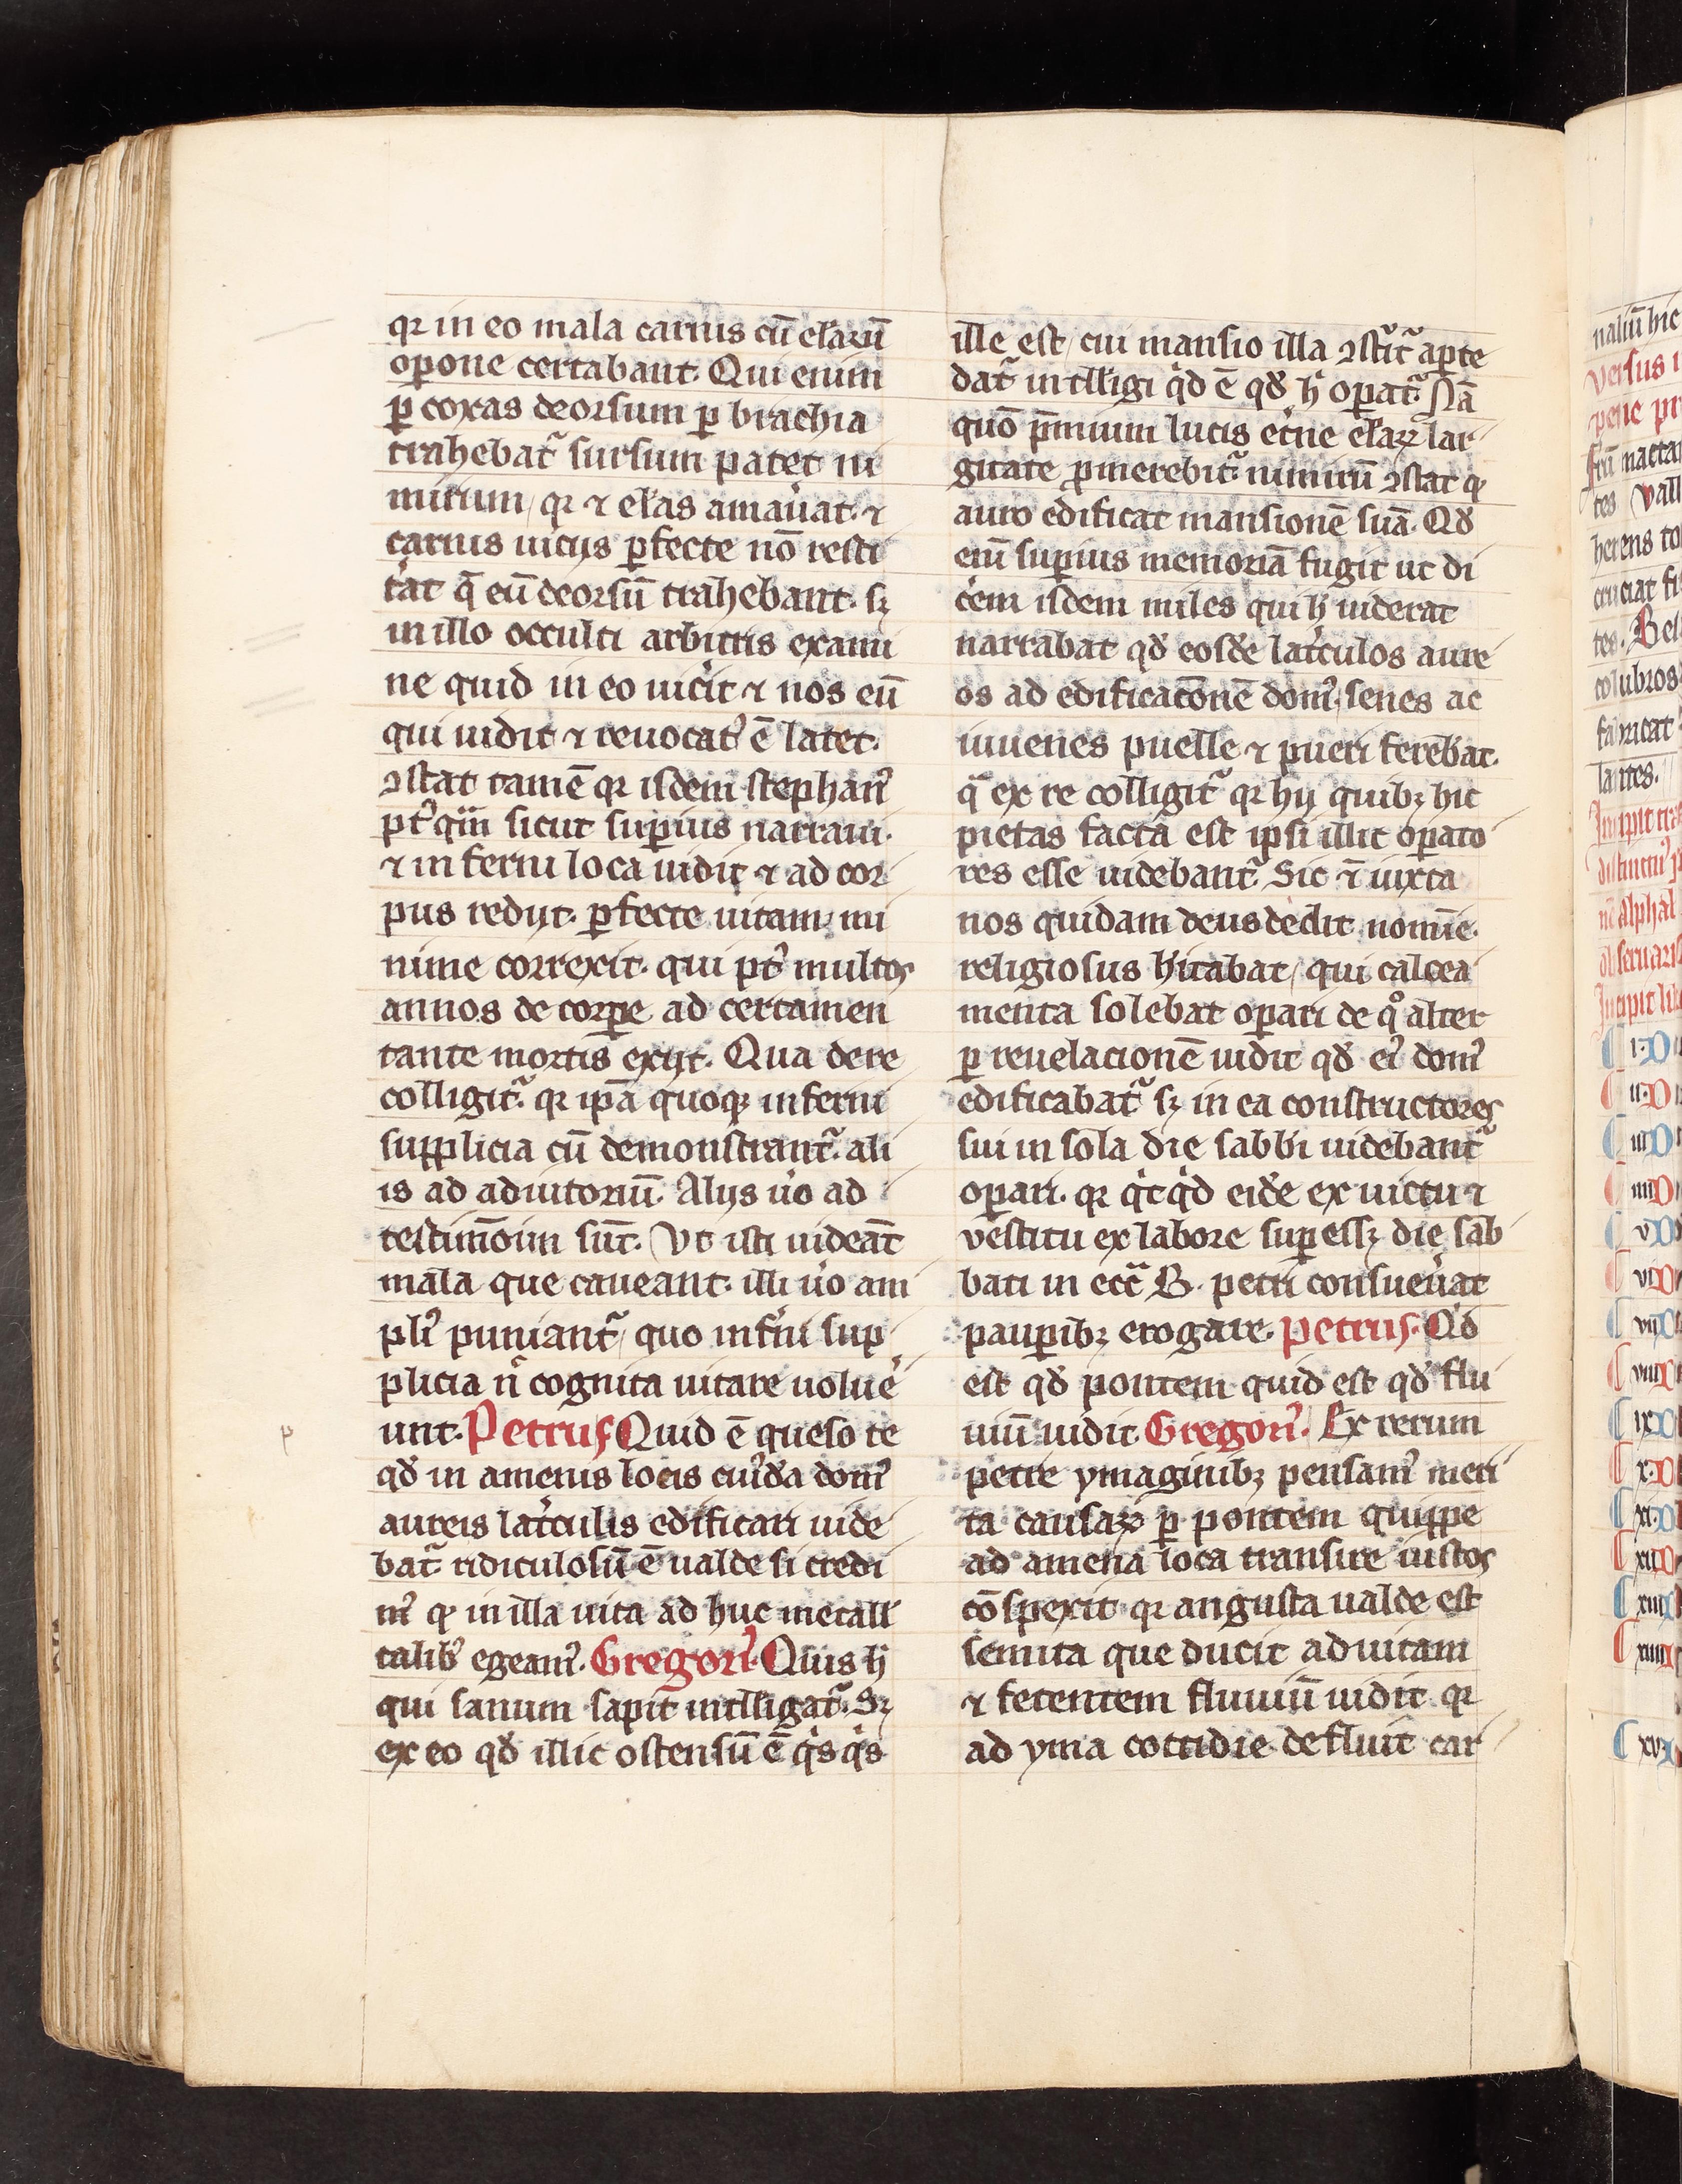 qr in eo mala carnis cū elaꝝū
oꝑone certabant. Qui enim
ꝑ coxas deorsum ꝑ brachia
trahebat᷑ sursum patet ni
mirum / qr ⁊ el̓as amau̓at. ⁊
carnis uicijs ꝑfecte nō resti
t̓at q̄ eū deorsū trahebant. sꝫ
in illo occulti arbitris exami
ne quid in eo uic̓it ⁊ nos eū
qui uidit ⁊ reuocatꝰ ē latet.
ꝯstat tamē qr isdem stephanꝰ
ptꝰqm̄ sicut suꝑius narraui.
⁊ inferni loca uidit ⁊ ad cor
pus redijt. ꝑfecte uitam mi
nime correxit. qui ptꝰ multos
annos de corꝑe ad certamen
tante mortis exijt. Qua de re
colligit᷑. qr ip̄a quoqꝫ inferni
supplicia cū demonstrant᷑. ali
is ad adiutoriū. Alijs u̓o ad
testimōim sūt. Vt isti uideāt
mala que caueant. illi u̓o am
plꝰ puniant᷑ / quo inf̓ni sup
plicia n̄ cognita uitare uolue̓
unt. Petrus Quid ē queso te
qd̓ in amenis locis cuiꝰd̓a domꝰ
aureis lat̓culis edificari uide
bat᷑ ridiculosū ē ualde si credi
mꝰ qꝫ in illa uita ad huc metall
talibꝰ egeamꝰ. Gregoriꝰ. Quis h̓
qui sanum sapit intlligat᷑. Sꝫ
ex eo qd̓ illic ostensū ē q̓s q̓s
ille est / cui mansio illa ꝯst̓it᷑ aꝑte
dat᷑ intlligi q̓d ē qd̓ h̓ oꝑat᷑. Nā
quō p̄mium lucis et̓ne el̓aꝝ lar
gitate ꝓmerebit᷑. nimirū ꝯstat qꝫ
auro edificat mansionē suā. Qd̓
enī suꝑius memoriā fugit ut di
c̓em isdem miles qui h̓ uiderat
narrabat qd̓ eosd̓e lat̓culos aure
os ad edificatōnē domꝰ / senes ac
iuuenes puelle ⁊ pueri fereb̓at.
q̄ ex re colligit᷑ qr hij quibꝫ hic
pietas facta est ipsi illic oꝑato
res esse uidebant᷑. Sic ⁊̄ iuxta
nos quidam deusdedit nomīe.
religiosus h̓itabat / qui calcea
menta solebat oꝑari de qͦ alter
ꝑ reuelacionē uidit qd̓ eiꝰ domꝰ
edificabat᷑ sꝫ in ea constructores
sui in sola die sabb̓i uidebant᷑
oꝑari. qr q̓cq̓d eid̓e ex uictu ⁊
vestitu ex labore suꝑ essꝫ die sab
bati in ecc᷑ B. petri consueu̓at
pauꝑibꝫ erogare. Petrus. Qd̓
est qd̓ pontem quid est qd̓ flu
uiū uidit. Gregoriꝰ. Ex rerum
petre ymaginibꝫ pensamꝰ meri
ta causaꝝ ꝑ pontem quippe
ad amena loca transire iustos
cōspexit qr angusta ualde est
semita que ducit ad uitam
⁊ fetentem fluuiū uidit qr
ad yma cottidie defluit car